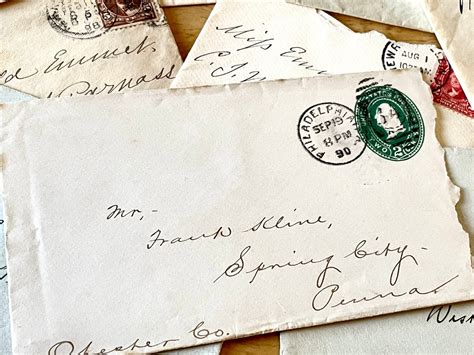 Emmet
Parnass
Miss Emmet
AUG 1
PHILADELPHIA
SEP 19
8 PM
90
TWO
2
Mr,-
Frank Kline,
Spring City-
Penna
Chester Co.